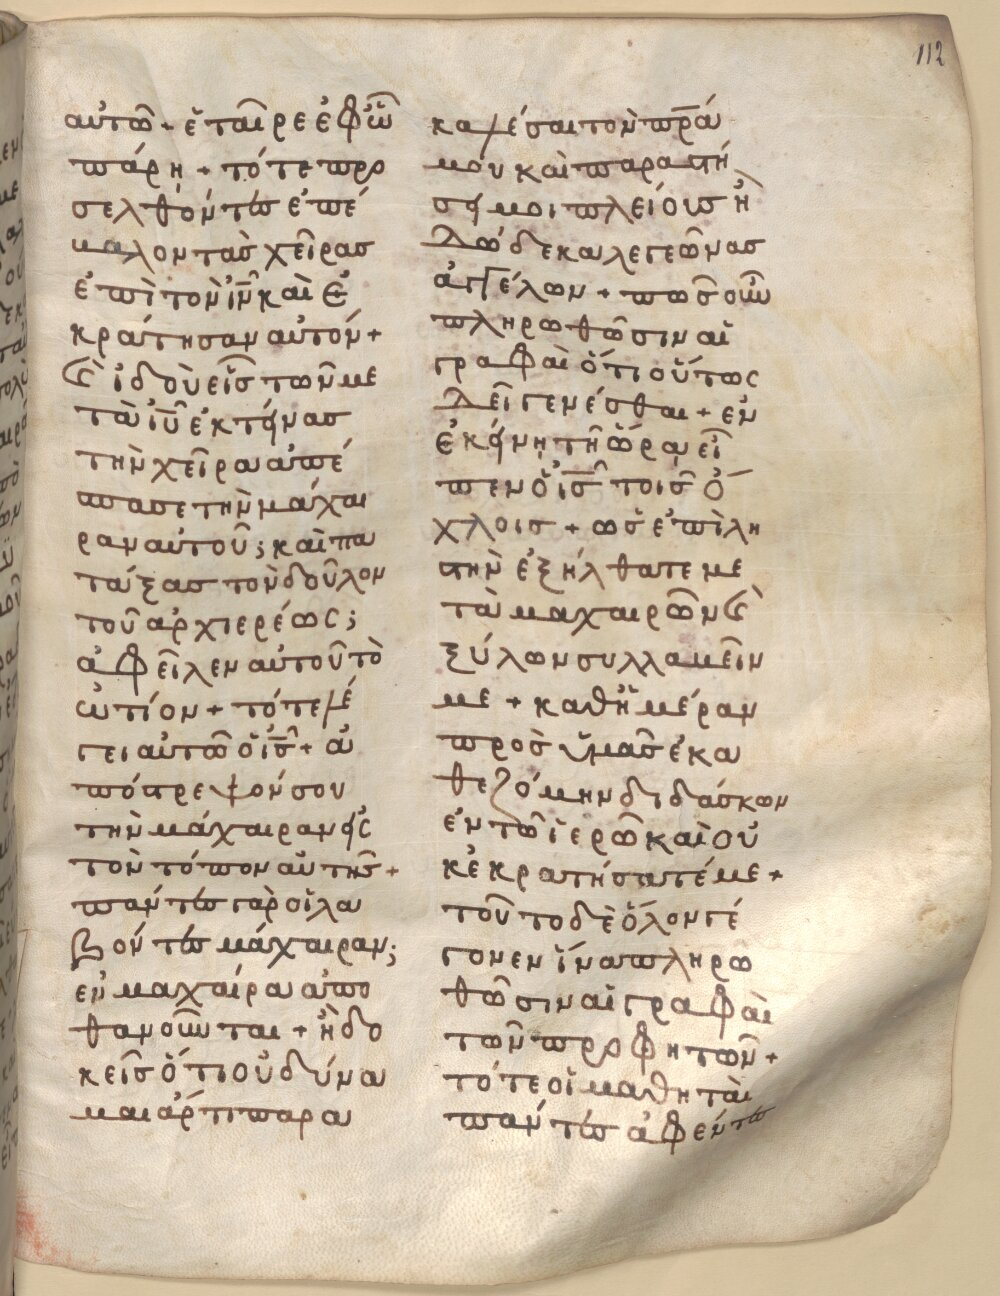 112
αὐτῶ + ἑταῖρε ἐφ ὧ
πάρη + τότε προ
σελθόντες ἐπέ
βαλον τὰς χεῖρας
ἐπὶ τὸν ἰν καὶ ἐ
κράτησαν αὐτόν +
ϗ ἰδοὺ εἷς τῶν με
τὰ ἰυ ἐκτήνας
τὴν χεῖρα ἀπέ
σπασε τὴν μάχαι
ραν αὐτοῦ; καὶ πα
τάξας τὸν δοῦλον
τοῦ ἀρχιερέως;
ἀφεῖλεν αὐτοῦ τὸ
ὠτίον + τότε λέ
γει αὐτῶ ὁ ις + ἀ
πόστρεψόν σου
τὴν μάχαιραν ἡς
τὸν τόπον αὐτῆς +
πάντες γὰρ οἱ λα
βόντες μάχαιραν;
ἐν μαχαίρα ἀπο
θανοῦνται + ἢ δο
κεῖς ὅτι οὐ δύνα
μαι ἄρτι παρα
καλέσαι τὸν πρα
μου καὶ παραστή
σή μοι πλείους ἢ
δώδεκα λεγεῶνας
ἀγγέλων + πῶς οὖν
πληρωθῶσιν αἱ
γραφαὶ ὅτι οὕτως
δεῖ γενέσθαι + ἐν
ἐκήνη τῆ ὥρα εἶ
πεν ὁ ις τοῖς ὄ
χλοις + ὡς ἐπὶ λη
στὴν ἐξήλθατε με
τὰ μαχαιρῶν ϗ
ξύλων συλλαβεῖν
με + καθ ἡμέραν
πρὸς ὑμᾶς ἐκα
θεζόμην διδάσκων
ἐν τῶ ἱερῶ καὶ οὐ
κ ἐκρατήσατέ με +
τοῦτο δὲ ὅλον γέ
γονεν ἵνα πληρω
θῶσιν αἱ γραφαὶ
τῶν προφητῶν +
τότε οἱ μαθηταὶ
πάντες ἀφέντες